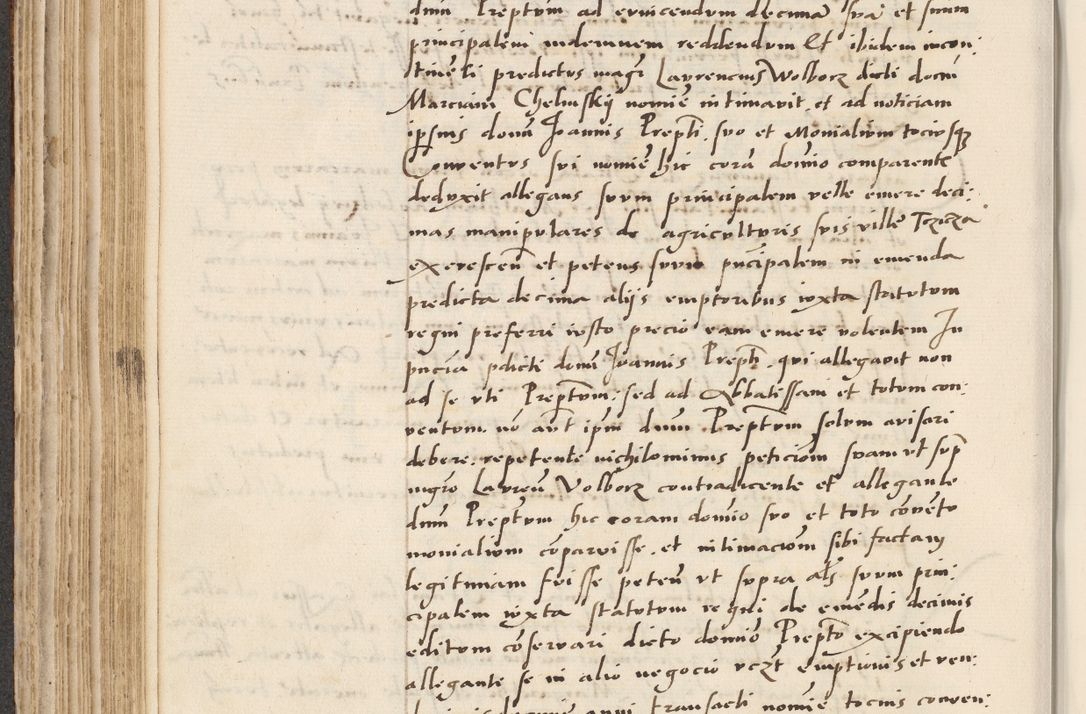 dnm Preptum ad evincendum decima sua et suum
principalem indemnem reddendum Et ibidem incon:
tinenti predictus magr Laurencius Wolborz dicti domi
Marciani Chelmskij nomie intimavit et ad noticiam
ipsius domi Joannis Prepti suo et Monialium tociusque
Conventus sui nomie hic cora domio comparente
deduxit allegans suum principalem velle emere deci:
mas manipulares de agriculturis suis ville Tczicza
excrescen et petens suum pncipalem in emenda
predicta decima alijs emptoribus iuxta statutum
regni preferri iusto precio eam emere volentem In
pncia pdicti domi Joannis Prepti qui allegavit non
ad se uti Preptum: sed ad Abbatissam et totum con:
ventum. no aut ipm dnm Preptum solum avisari
debere: repetente nichilominus peticiom suam ut supr
mgro Lauren Wolborz contradicente et allegante
dnm Preptum hic coram domio suo et toto convento
monialium comparuisse. et intimaciom sibi factam
legitimam fuisse peten ut supra als suum prin:
cipalem iuxta statutum regni de emendis decimis
editum conservari dicto domio Prepto excipiendo
allegante se in alio negocio vczt emptionis et ven:
anni transacti nomie tocius conven: